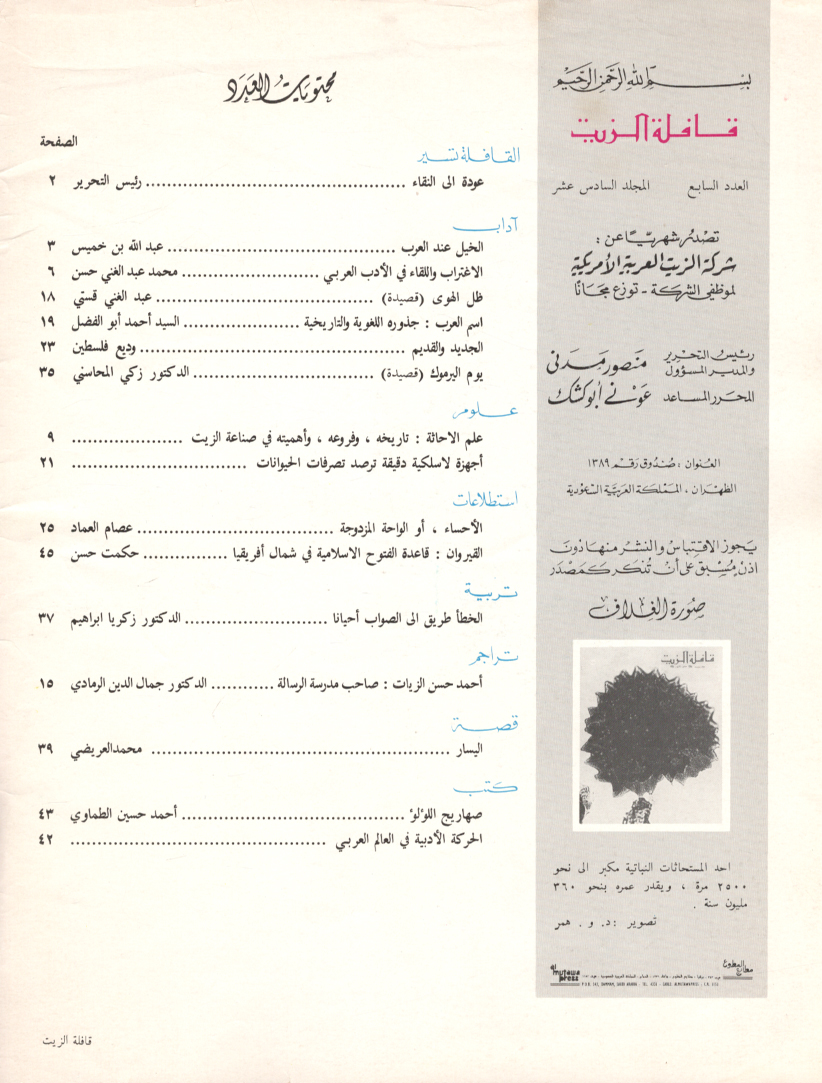 بسم الله الرحمن الرحيم
قافلة الزيت
العدد السابع المجلد السادس عشر
تصدر شهريًا عن :
شركة الزيت العربية الأمريكية
لموظفي الشركة - توزع مجانًا
رئيس التحرير والمدير المسؤول منصور مدني
المحرر المساعد عوني أبوكشك
العنوان : صندوق رقم ١٣٨٩
الظهران ، المملكة العربية السعودية
يجوز الاقتباس والنشر منها دون
اذن مسبق على أن تذكر كمصدر
صورة الغلاف
قافلة الزيت
احد المستحاثات النباتية مكبر الى نحو
٢٥٠٠ مرة ، ويقدر عمره بنحو ٣٦٠
مليون سنة .
تصوير : د. و. همر
مطابع المطوع
al mutawa press
محتويات العدد
الصفحة
القافلة تسير
عودة الى النقاء ........ رئيس التحرير ٢
آداب
الخيل عند العرب ........ عبد الله بن خميس ٣
الاغتراب واللقاء في الأدب العربي ........ محمد عبد الغني حسن ٦
ظل الهوى (قصيدة) ........ عبد الغني قستي ١٨
اسم العرب : جذوره اللغوية والتاريخية ........ السيد أحمد أبو الفضل ١٩
الجديد والقديم ........ وديع فلسطين ٢٣
يوم اليرموك (قصيدة) ........ الدكتور زكي المحاسني ٣٥
علوم
علم الاحاثة : تاريخه ، وفروعه ، وأهميته في صناعة الزيت ........ ٩
أجهزة لاسلكية دقيقة ترصد تصرفات الحيوانات ........ ٢١
استطلاعات
الأحساء ، أو الواحة المزدوجة ........ عصام العماد ٢٥
القيروان : قاعدة الفتوح الاسلامية في شمال أفريقيا ........ حكمت حسن ٤٥
تربية
الخطأ طريق الى الصواب أحيانا ........ الدكتور زكريا ابراهيم ٣٧
تراجم
أحمد حسن الزيات : صاحب مدرسة الرسالة ........ الدكتور جمال الدين الرمادي ١٥
قصة
اليسار ........ محمد العريضي ٣٩
كتب
صهاريج اللؤلؤ ........ أحمد حسين الطماوي ٤٣
الحركة الأدبية في العالم العربي ........ ٤٢
قافلة الزيت